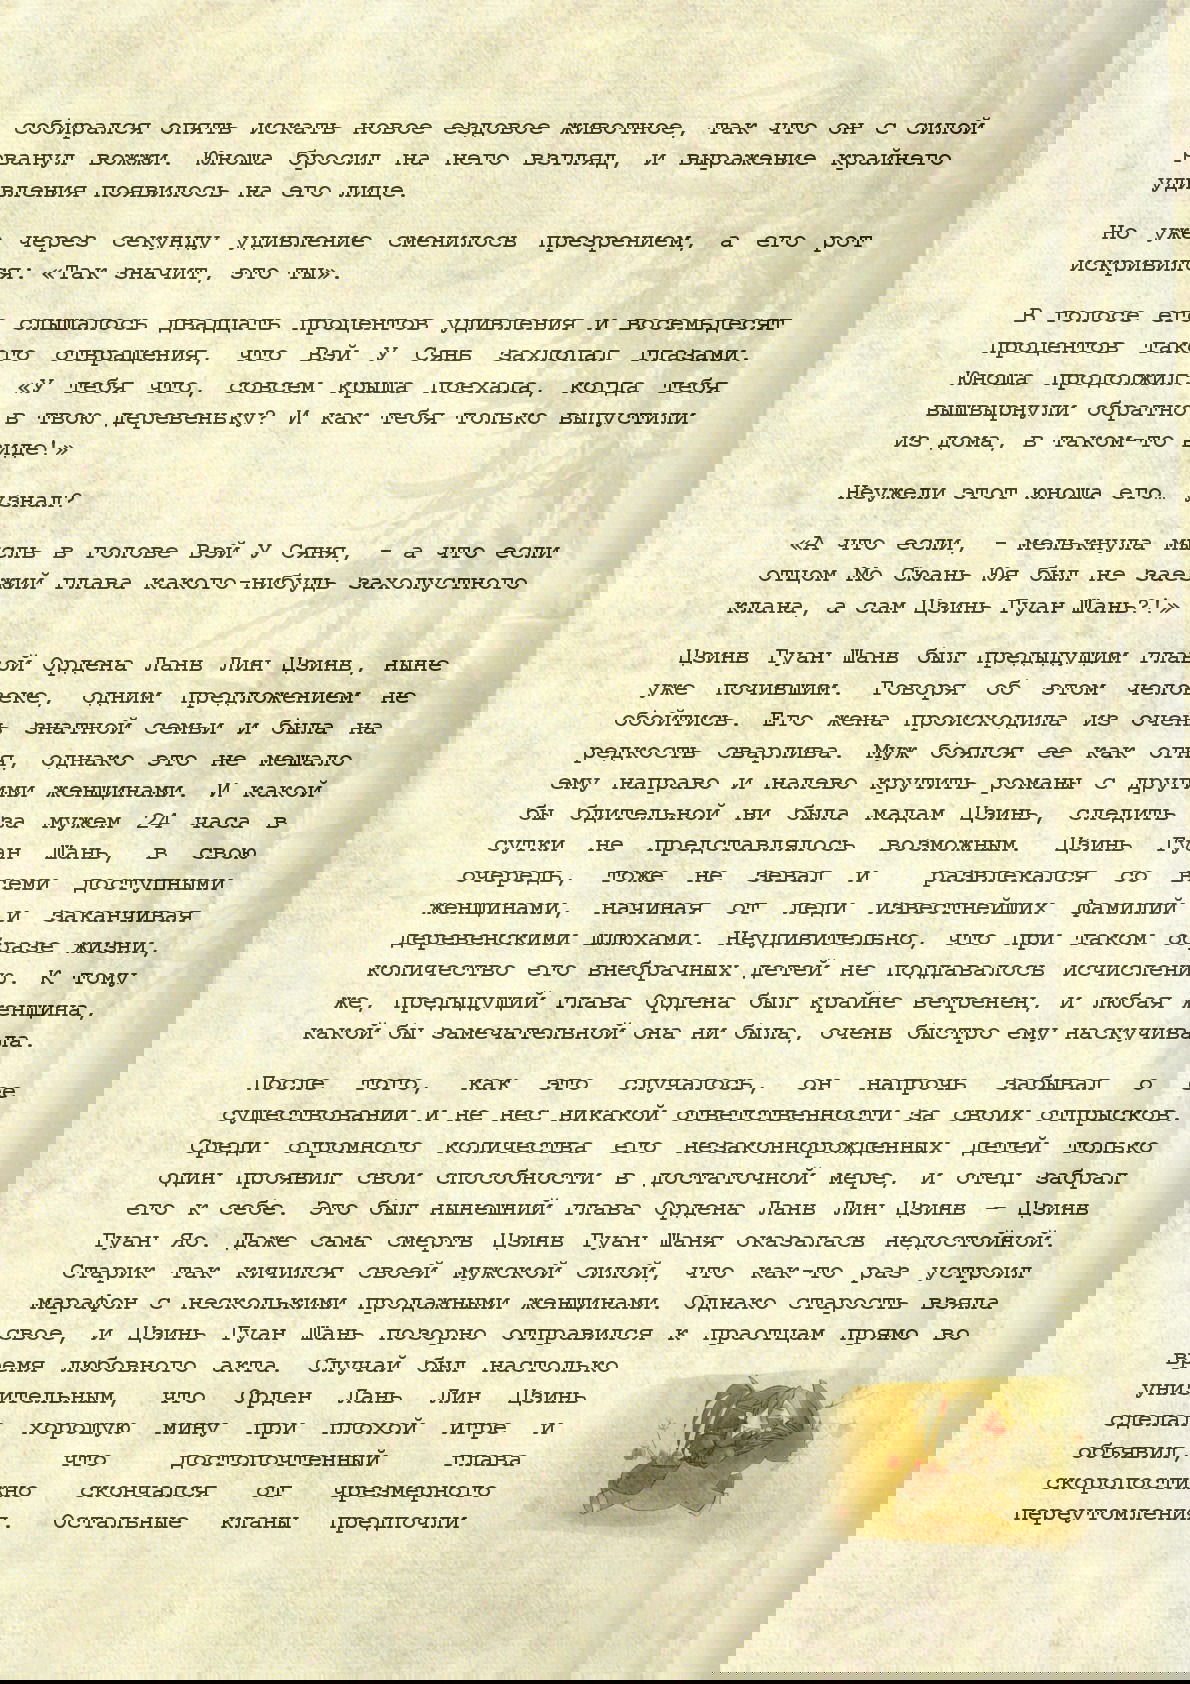 собирался опять искать новое ездовое животное, так что он с силой
рванул вожжи. Юноша бросил на него взгляд, и выражение крайнего
удивления появилось на его лице.
Но уже через секунду удивление сменилось презрением, а его рот
искривился: «Так значит, это ты».
В голосе его слышалось двадцать процентов удивления и восемьдесят
процентов такого отвращения, что Вэй У Сянь захлопал глазами.
Юноша продолжил: «У тебя что, совсем крыша поехала, когда тебя
вышвырнули обратно в твою деревеньку? И как тебя только выпустили
из дома, в таком-то виде!»
Неужели этот юноша его… узнал?
«А что если, - мелькнула мысль в голове Вэй У Сяня, - а что если
отцом Мо Сюань Юя был не заезжий глава какого-нибудь захолустного
клана, а сам Цзинь Гуан Шань?!»
Цзинь Гуан Шань был предыдущим главой Ордена Лань Лин Цзинь, ныне
уже почившим. Говоря об этом человеке, одним предложением не
обойтись. Его жена происходила из очень знатной семьи и была на
редкость сварлива. Муж боялся ее как огня, однако это не мешало
ему направо и налево крутить романы с другими женщинами. И какой
бы бдительной ни была мадам Цзинь, следить за мужем 24 часа в
сутки не представлялось возможным. Цзинь Гуан Шань, в свою
очередь, тоже не зевал и развлекался со всеми доступными
женщинами, начиная от леди известнейших фамилий и заканчивая
деревенскими шлюхами. Неудивительно, что при таком образе жизни,
количество его внебрачных детей не поддавалось исчислению. К тому
же, предыдущий глава Ордена был крайне ветренен, и любая женщина,
какой бы замечательной она ни была, очень быстро ему наскучивала.
После того, как это случалось, он напрочь забывал о ее
существовании и не нес никакой ответственности за своих отпрысков.
Среди огромного количества его незаконнорожденных детей только
один проявил свои способности в достаточной мере, и отец забрал
его к себе. Это был нынешний глава Ордена Лань Лин Цзинь – Цзинь
Гуан Яо. Даже сама смерть Цзинь Гуан Шаня оказалась недостойной.
Старик так кичился своей мужской силой, что как-то раз устроил
марафон с несколькими продажными женщинами. Однако старость взяла
свое, и Цзинь Гуан Шань позорно отправился к праотцам прямо во
время любовного акта. Случай был настолько
унизительным, что Орден Лань Лин Цзинь
сделал хорошую мину при плохой игре и
объявил, что достопочтенный глава
скоропостижно скончался от чрезмерного
переутомления. Остальные кланы предпочли